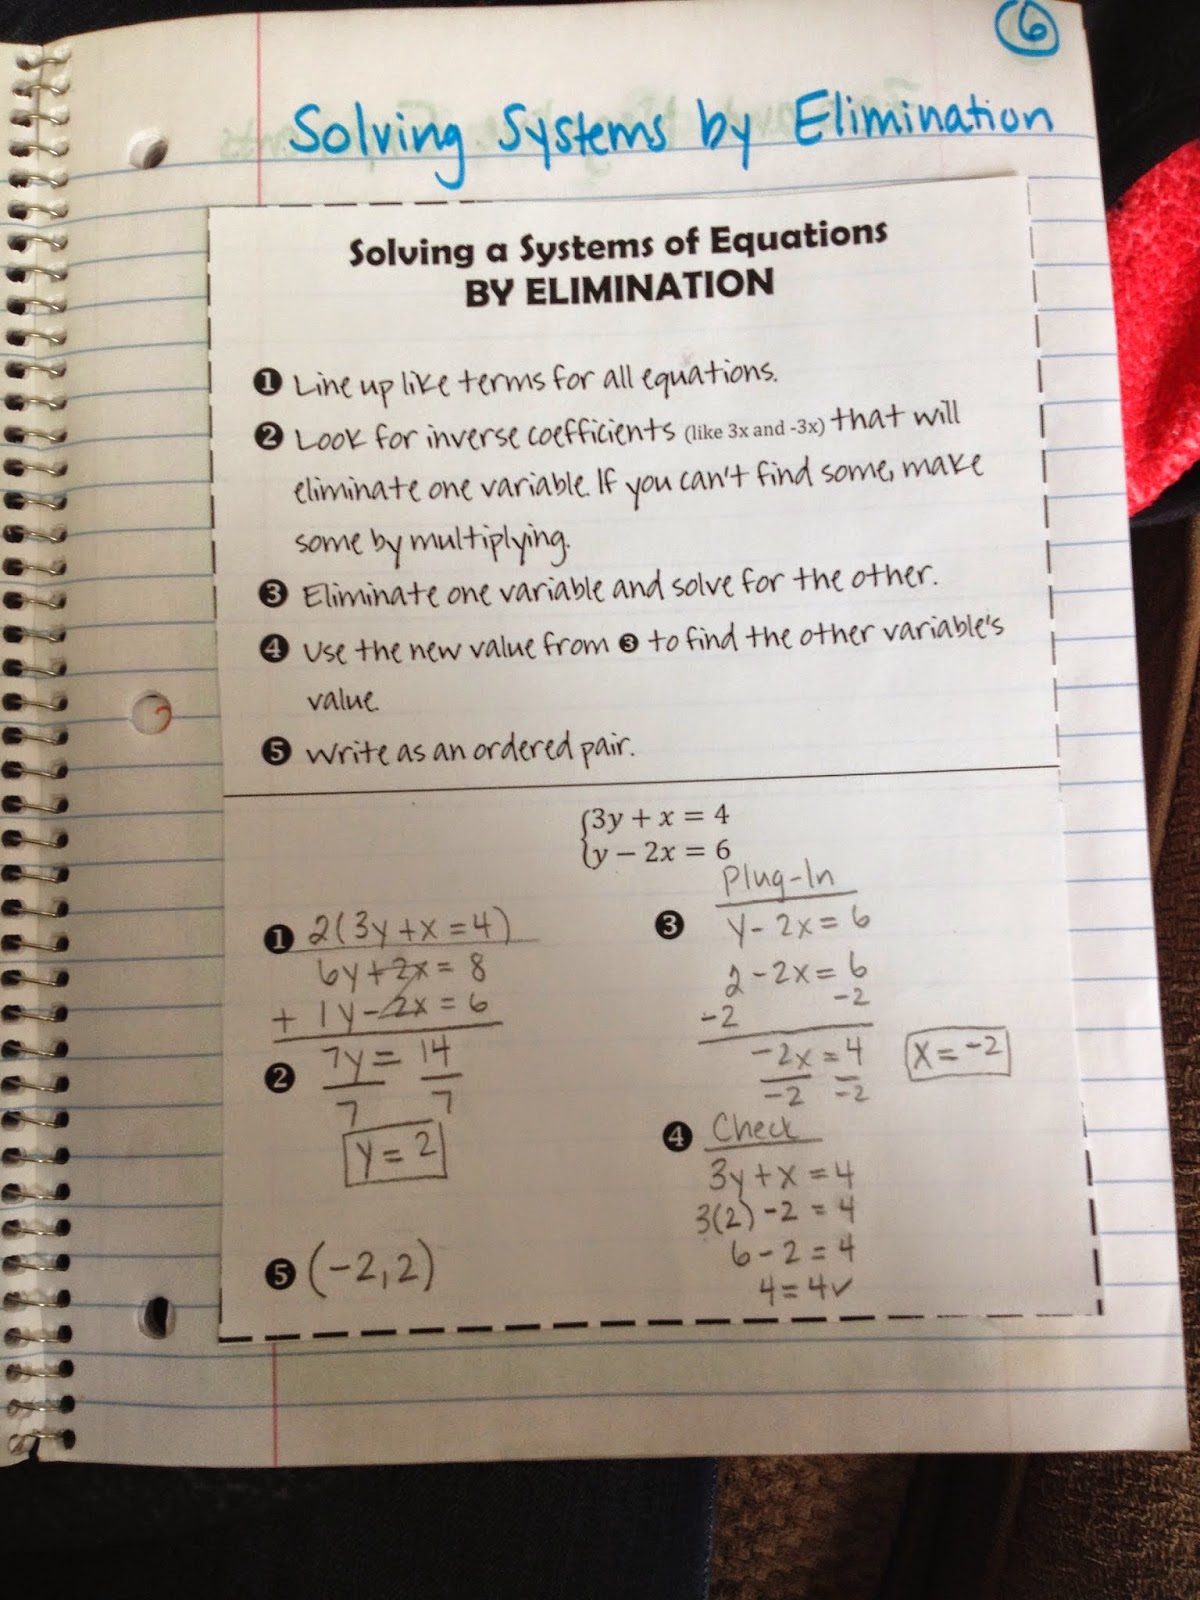 6
Solving Systems by Elimination
Solving a Systems of Equations
BY ELIMINATION
❶ Line up like terms for all equations.
❷ Look for inverse coefficients (like 3x and -3x) that will
eliminate one variable. If you can't find some, make
some by multiplying.
❸ Eliminate one variable and solve for the other.
❹ Use the new value from ❸ to find the other variable's
value.
❺ Write as an ordered pair.
3y + x = 4
y − 2x = 6
❶ 2(3y + x = 4)
6y + 2x = 8
+ 1y - 2x = 6
❷ 7y = 14
7 7
y = 2
❸ Plug-In
y - 2x = 6
2 - 2x = 6
-2 -2
-2x = 4
-2 -2
x = -2
❹ Check
3y + x = 4
3(2) - 2 = 4
6 - 2 = 4
4 = 4 ✓
❺ (-2, 2)